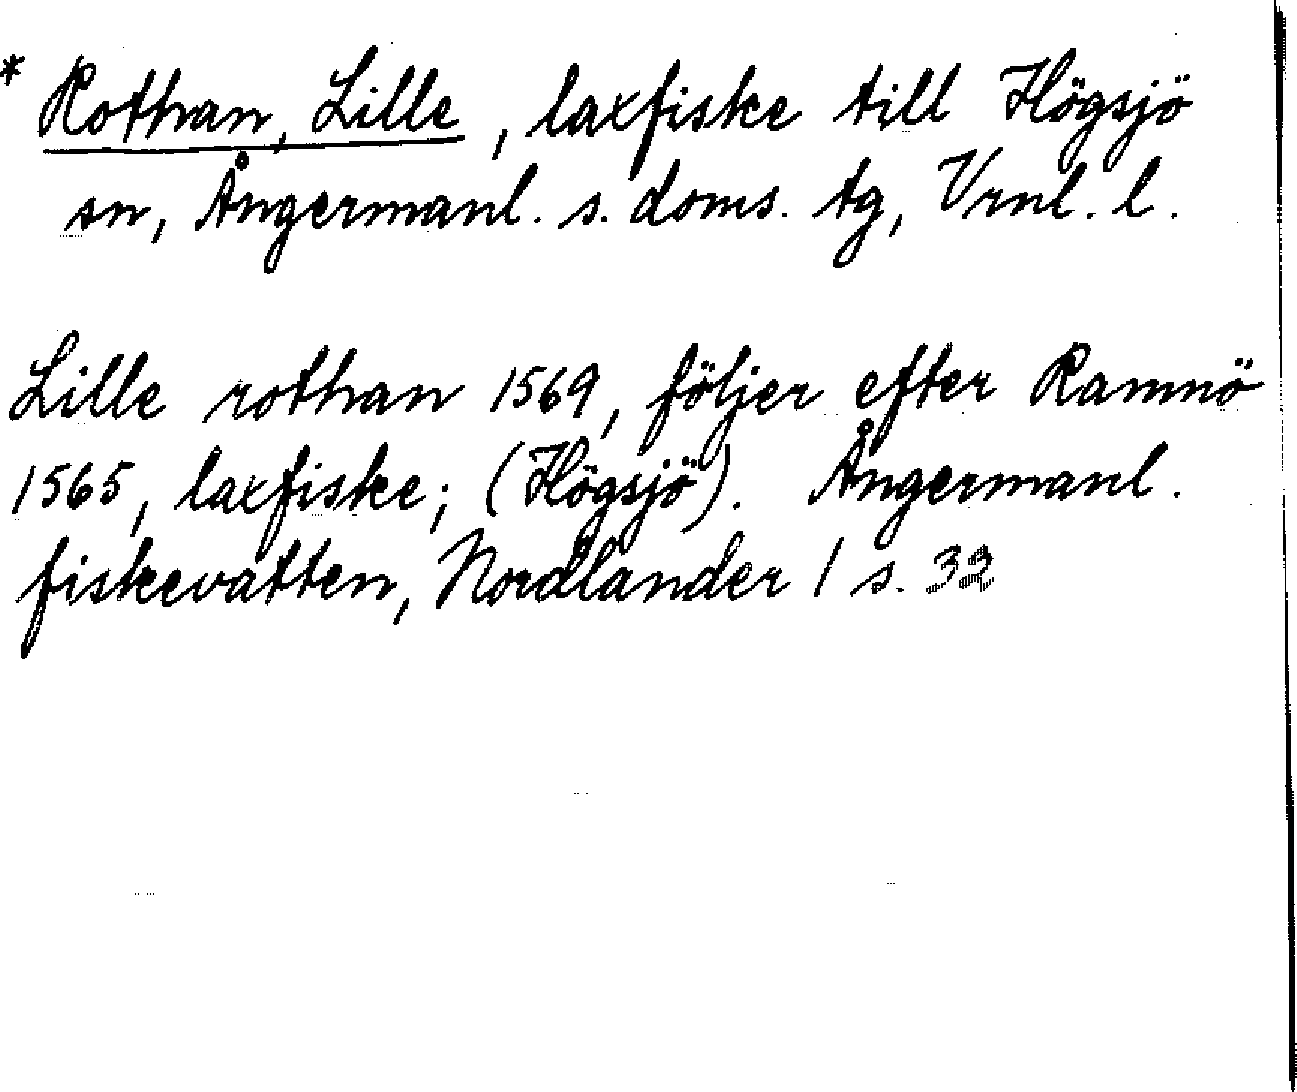 * Rothan, Lille, laxfiske till Högsjö
sn, Ångermanl. s. doms. tg, Vrnl. l.
Lille rothan 1569, följer efter Ramnö
1565, laxfiske; (Högsjö). Ångermanl.
fiskevatten, Nordlander 1 s.